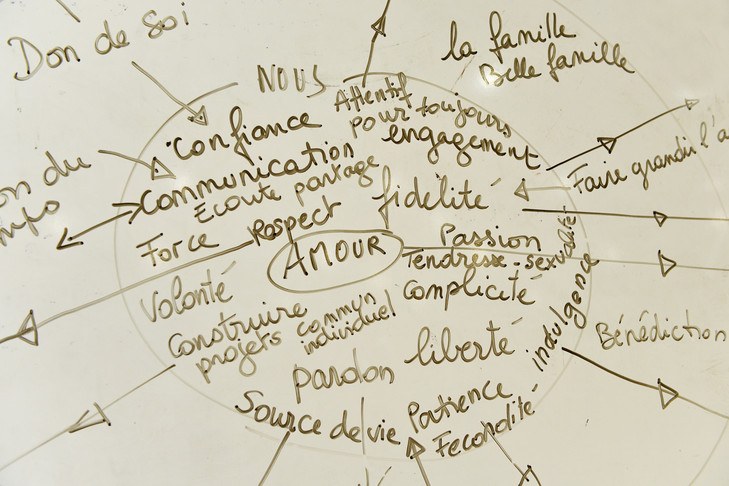 Don de Soi
la famille
Belle famille
NOUS
Attentif
pour toujours
engagement
Confiance
Communication
Ecoute partage
on du
Faire grandir l'a
fidélité
Force
Respect
AMOUR
Passion
Tendresse - sexualité -
Complicité
Volonté
Construire
projets commun
individuel
indulgence
Bénédiction
liberté
pardon
Source de vie
Patience
Fecondité -